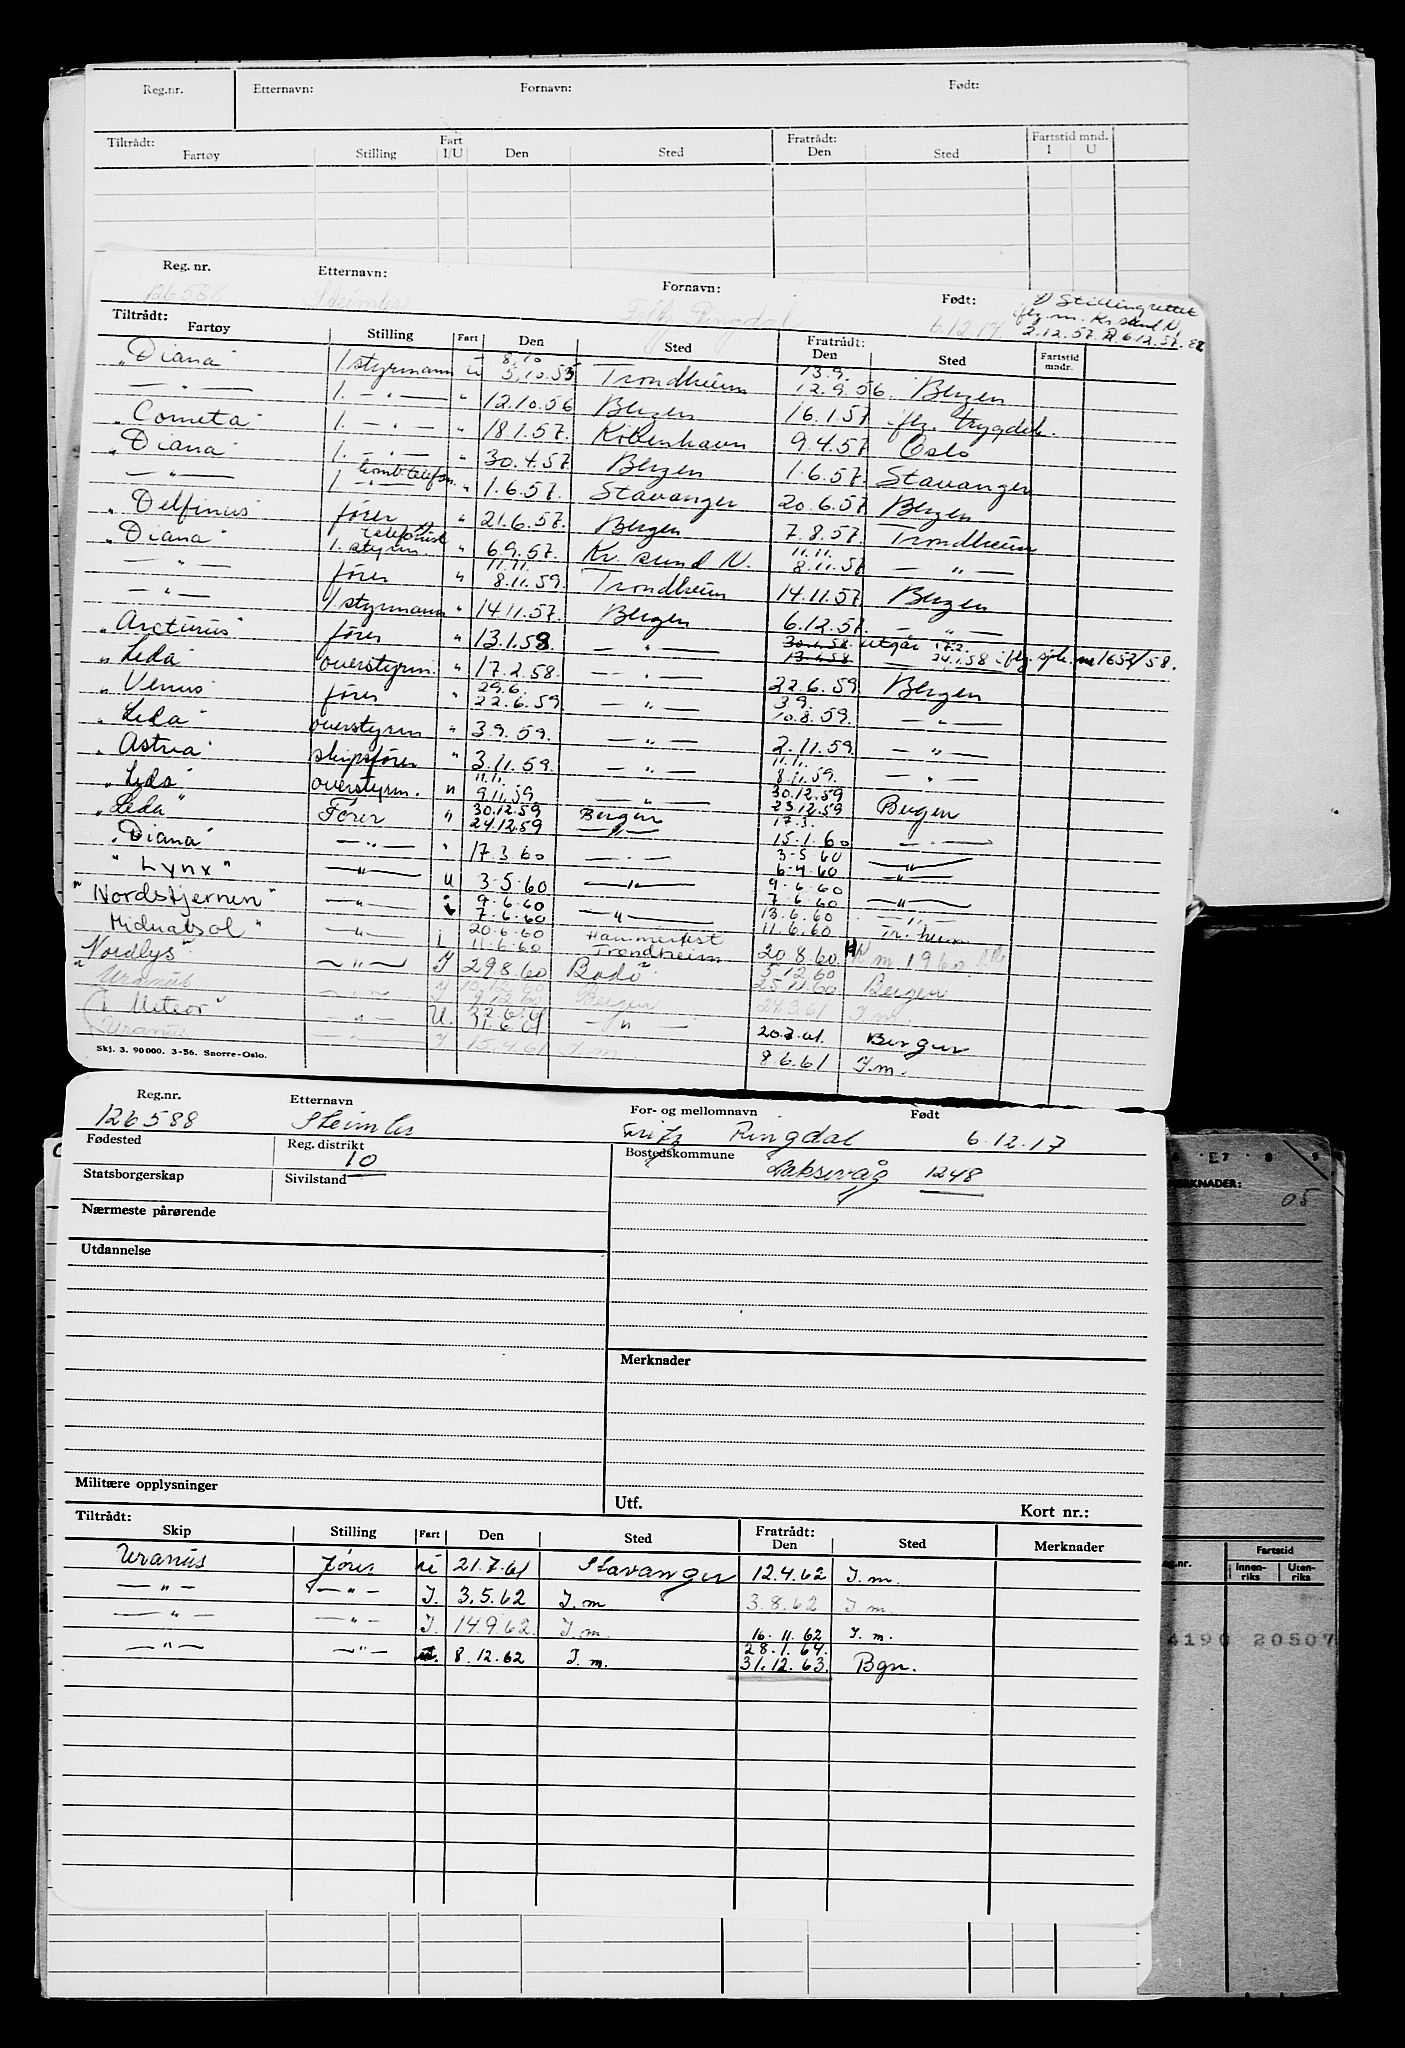 Reg.nr. Etternavn: Fornavn: Født:
Tiltrådt: Fart Fratrådt: Fartstid mnd.
Fartøy Stilling I/U Den Sted Den Sted I U
Reg. nr. Etternavn: Fornavn: Født: 1) Stilling rettet
126588 Steimler Fritz Ringdal 6.12.17 iflg. m. Kr.sund N.
2.12.57. 6.12.57.
Tiltrådt: Fratrådt: Fartstid
Fartøy Stilling Fart Den Sted Den Sted madr.
8.10 13.9.
"Diana" 1 styrmann u 5.10.55 Trondheim 12.9.56. Bergen
— " — 1. — " — " 12.10.56 Bergen 16.1.57 iflg. trygdek.
"Cometa" 1. — " — " 18.1.57. København 9.4.57 Oslo
"Diana" 1. — " — " 30.4.57. Bergen 1.6.57. Stavanger
— " — 1. — " — komb. telefon. " 1.6.57. Stavanger 20.6.57 Bergen
"Delfinus" fører " 21.6.57. Bergen 7.8.57. Trondheim
telefonist 11.11.
"Diana" 1. styrm. " 6.9.57. Kr. sund N. 8.11.57 — " —
11.11.
— " — fører " 8.11.59. Trondheim 14.11.57. Bergen
— " — 1 styrmann " 14.11.57. Bergen 6.12.57. — " —
30.1.58. utgår 17.2.
"Arcturus" fører " 13.1.58. — " — 13.1.58 24.1.58 iflg. sjh. m 1652/58.
"Leda" overstyrm. " 17.2.58. — " — 22.6.59. Bergen
29.6. 3.9.
"Venus" fører " 22.6.59. — " — 10.8.59. — " —
"Leda" overstyrm " 3.9.59. — " — 2.11.59. — " —
11.11.
"Astrea" skipsfører " 3.11.59. — " — 8.11.59. — " —
11.11. 30.12.59
"Leda" overstyrm. " 9.11.59 — " — 23.12.59 Bergen
30.12.59 17.3.
"Leda" Fører " 24.12.59 Bergen 15.1.60 — " —
3-5 60
"Diana" — " — " 17.3.60 — " — 6-4 60 — " —
9-6 60
"Lynx" — " — u 3-5-60 — " — 7-6 60 — " —
9-6-60 13.6.60
"Nordstjernen" — " — i 7-6-60 — " — 11.6.60 Tr.heim
20-6-60 Hammerfest
Midnatsol " — " — i 11-6-60 Trondheim 20.8.60. m 1960
5.12 60
"Nordlys" — " — I 29.8.60 Bodø 25.11.60 Bergen
10.12.60
"Uranus — " — I 9.12.60 Bergen 24.3.61 I.m.
22.6.61
"Meteor" — " — U. 11.6.61 — " — 20.7.61. Bergen
Uranus — " — I 15.4.61 I.m. 8.6.61 I.m.
Skj. 3. 90000. 3-56. Snorre-Oslo.
Reg.nr. Etternavn For- og mellomnavn Født
126588 Steimler Fritz Ringdal 6.12.17
Fødested Reg. distrikt Bostedskommune
10 Laksevåg 1248
Statsborgerskap Sivilstand
Nærmeste pårørende
Utdannelse
Merknader
Militære opplysninger
Utf. Kort nr.:
Tiltrådt: Fratrådt:
Skip Stilling Fart Den Sted Den Sted Merknader
Uranus fører i 21.7.61 Stavanger 12.4.62 I.m.
— " — — " — I. 3.5.62 I.m 3.8.62 I.m.
— " — — " — I. 14.9.62. I.m. 16.11.62 I.m.
28.1.64.
— " — — " — 8.12.62 I.m. 31.12.63. Bgn.
E 7 8 9
MERKNADER:
05
Fartstid
Innen-riks Uten-riks
4190 20507